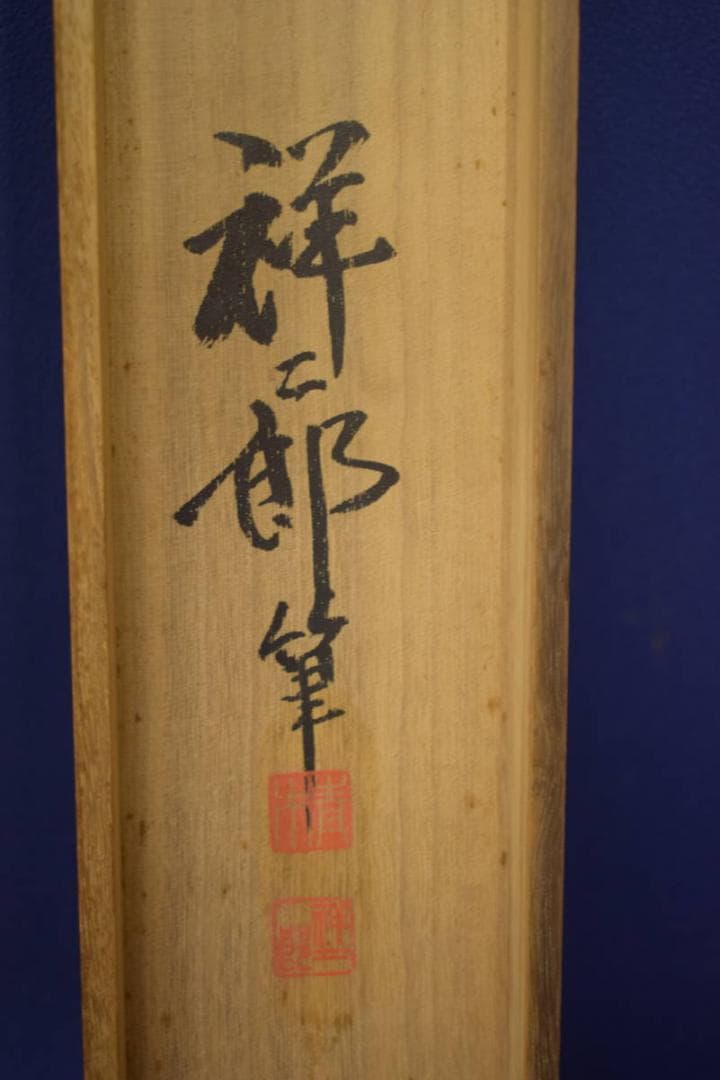 祥二郎筆